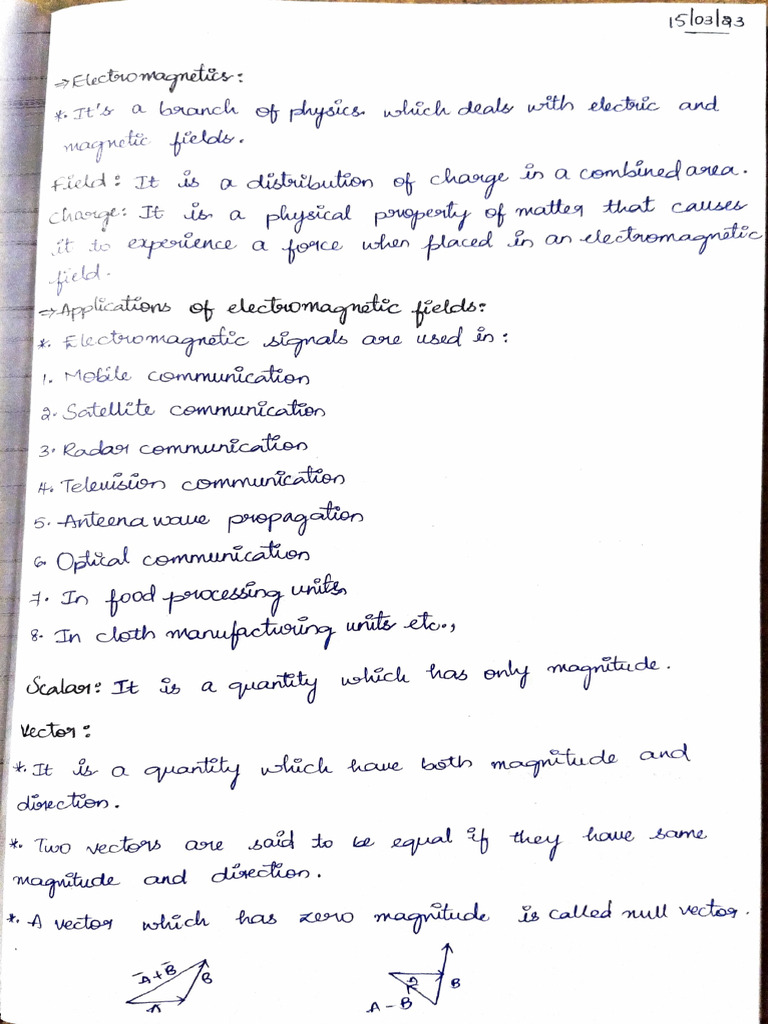 15/03/23
⇒Electromagnetics:
*. It's a branch of physics which deals with electric and
magnetic fields.
Field: It is a distribution of charge in a combined area.
Charge: It is a physical property of matter that causes
it to experience a force when placed in an electromagnetic
field.
⇒Applications of electromagnetic fields:
*. Electromagnetic signals are used in:
1. Mobile communication
2. Satellite communication
3. Radar communication
4. Television communication
5. Anteena wave propagation
6. Optical communication
7. In food processing units
8. In cloth manufacturing units etc.,
Scalar: It is a quantity which has only magnitude.
Vector:
*. It is a quantity which have both magnitude and
direction.
*. Two vectors are said to be equal if they have same
magnitude and direction.
*. A vector which has zero magnitude is called null vector.
A̅+B̅ B A
A B
A-B